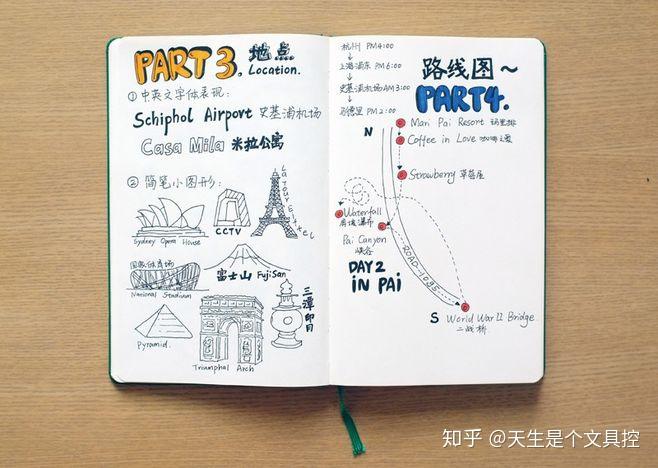 PART 3. 地点
Location.
① 中英文字体表现：
Schiphol Airport 史基浦机场
Casa Mila 米拉公寓
② 简笔小图形：
Sydney Opera House
CCTV
La Tour Eiffel
国家体育场
National Stadium
富士山 FujiSan
Pyramid.
Triumphal Arch
三潭印月
杭州 PM 4:00
上海浦东 PM 6:00
史基浦机场 AM 3:00
马德里 PM 2:00
路线图～
PART4.
N
Mari Pai Resort 玛里排
Coffee in Love 咖啡之爱
Strawberry 草莓屋
Waterfall
瀑布
Pai Canyon
峡谷
ROAD-1095
DAY 2
IN PAI
S
World War II Bridge
二战桥
知乎 @天生是个文具控